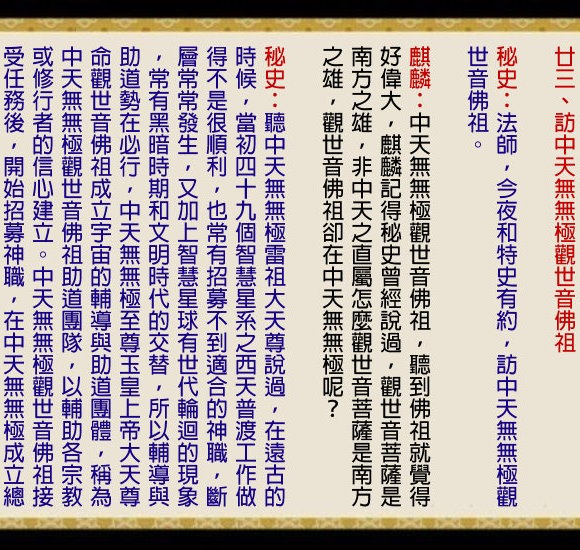 廿三、訪中天無無極觀世音佛祖
秘史：法師，今夜和特史有約，訪中天無無極觀
世音佛祖。
麒麟：中天無無極觀世音佛祖，聽到佛祖就覺得
好偉大，麒麟記得秘史曾經說過，觀世音菩薩是
南方之雄，非中天之直屬怎麼觀世音菩薩是南方
之雄，觀世音佛祖卻在中天無無極呢？
秘史：聽中天無無極雷祖大天尊說過，在遠古的
時候，當初四十九個智慧星系之西天普渡工作做
得不是很順利，也常有招募不到適合的神職，斷
層常常發生，又加上智慧星球有世代輪迴的現象
，常有黑暗時期和文明時代的交替，所以輔導與
助道勢在必行，中天無無極至尊玉皇上帝大天尊
命觀世音佛祖成立宇宙的輔導與助道團體，稱為
中天無無極觀世音佛祖助道團隊，以輔助各宗教
或修行者的信心建立。中天無無極觀世音佛祖接
受任務後，開始招募神職，在中天無無極成立總